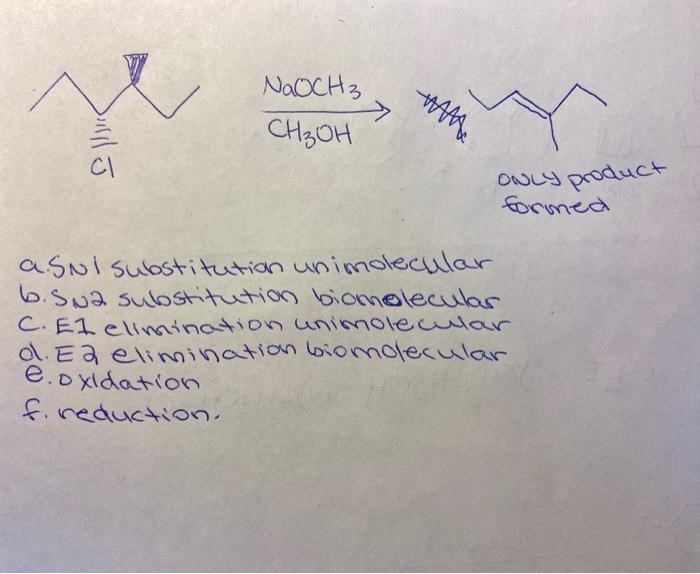 NaOCH3
CH3OH
Cl
ONLY product
formed
a. SN1 substitution unimolecular
b. SN2 substitution biomolecular
C. E1 elimination unimolecular
d. E2 elimination biomolecular
e. oxidation
f. reduction.